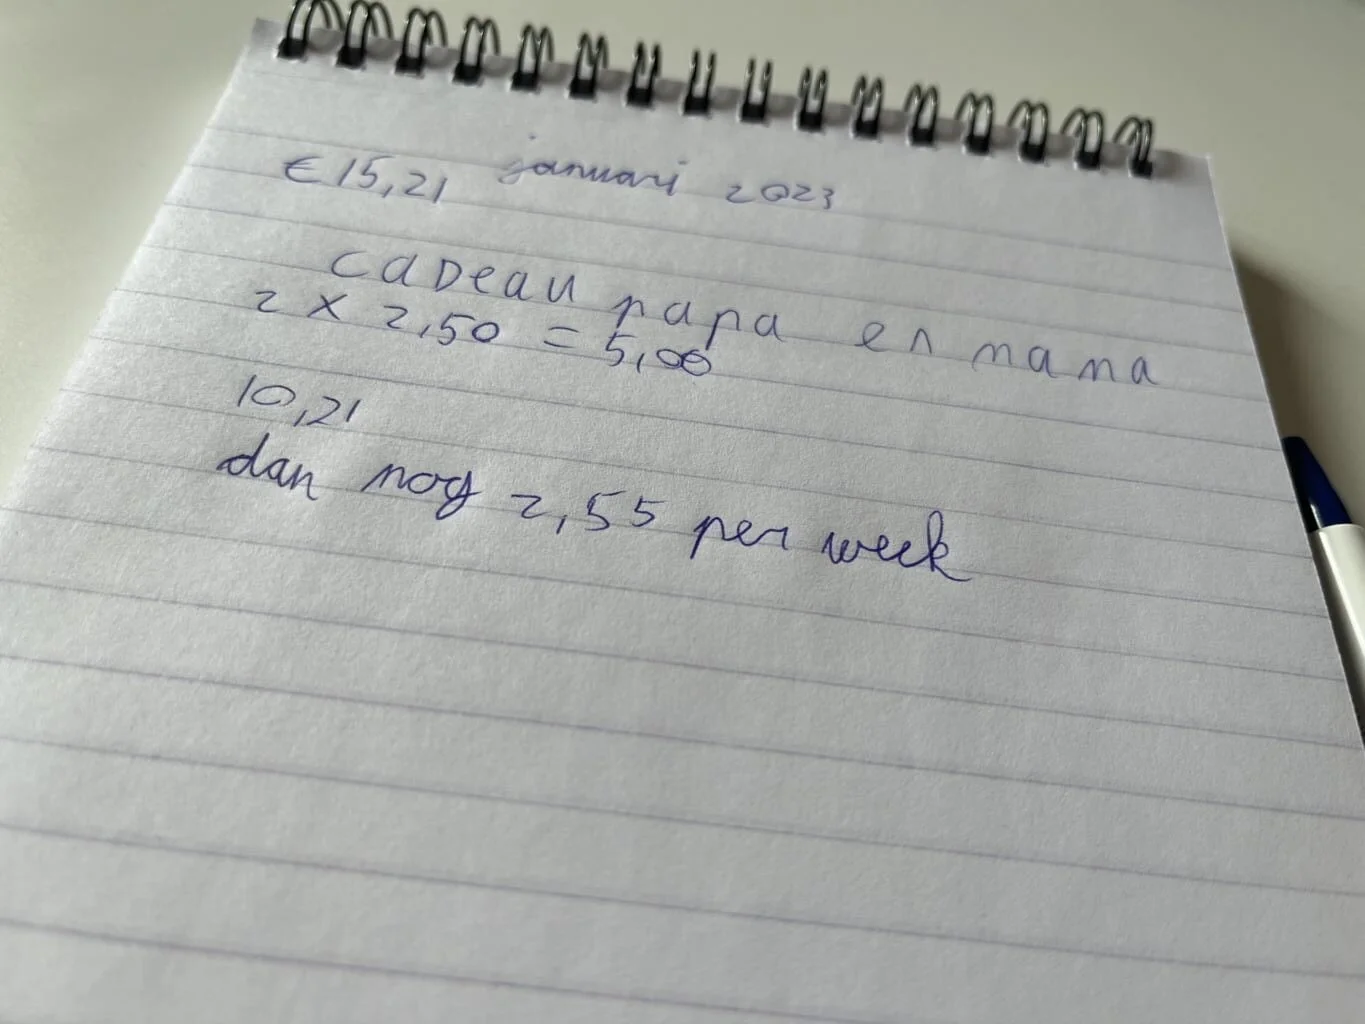 € 15,21 januari 2023
cadeau papa en mama
2 x 2,50 = 5,00
10,21
dan nog 2,55 per week